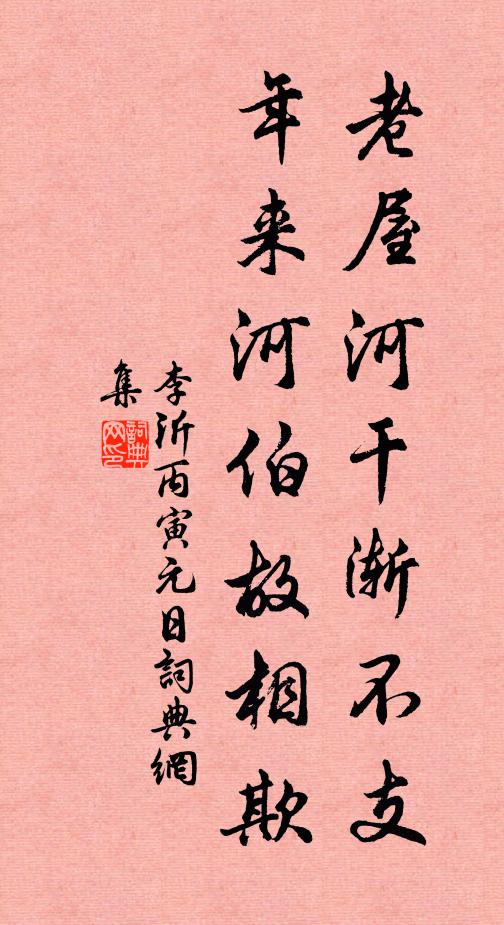 老屋河干渐不支
年来河伯故相欺
李沂丙寅元日詞典網
集
詞典网印